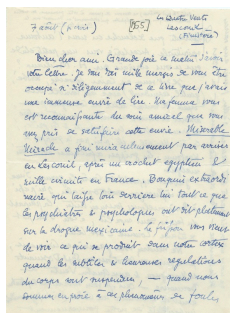 7 août (
[55]
Les Quatre Vents
Lesconil
(Finistère)
Bien cher ami. Grande joie ce matin d'avoir
votre lettre. Je vous dois mille mercis de vous être
occupé si diligemment de ce livre que j'avais
une immense envie de lire. Ma femme vous
est reconnaissante du soin amical que vous
avez pris de satisfaire cette envie. Misérable
Miracle a fini miraculeusement par arriver
en Lesconil, après un crochet egyptien &
mille circuits en France. Document extraordi-
naire qui laisse loin derrière lui tout ce que
les psychiatres & psychologues ont dit platement
sur la drogue mexicaine. Le frisson vous vient
de voir ce qui se produit dans notre cortex
quand les subtiles & heureuses regulations
du corps sont suspendues, — quand nous
sommes en proie à ces phénomènes de foules